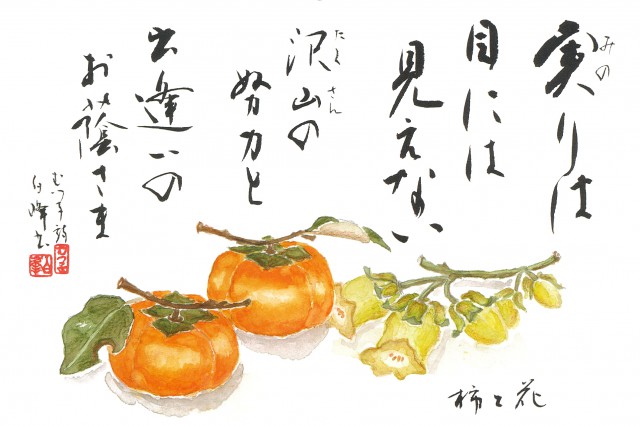 みの
実りは
目には
見えない
たくさん
沢山の
努力と
出逢いの
お蔭さま
柿と花